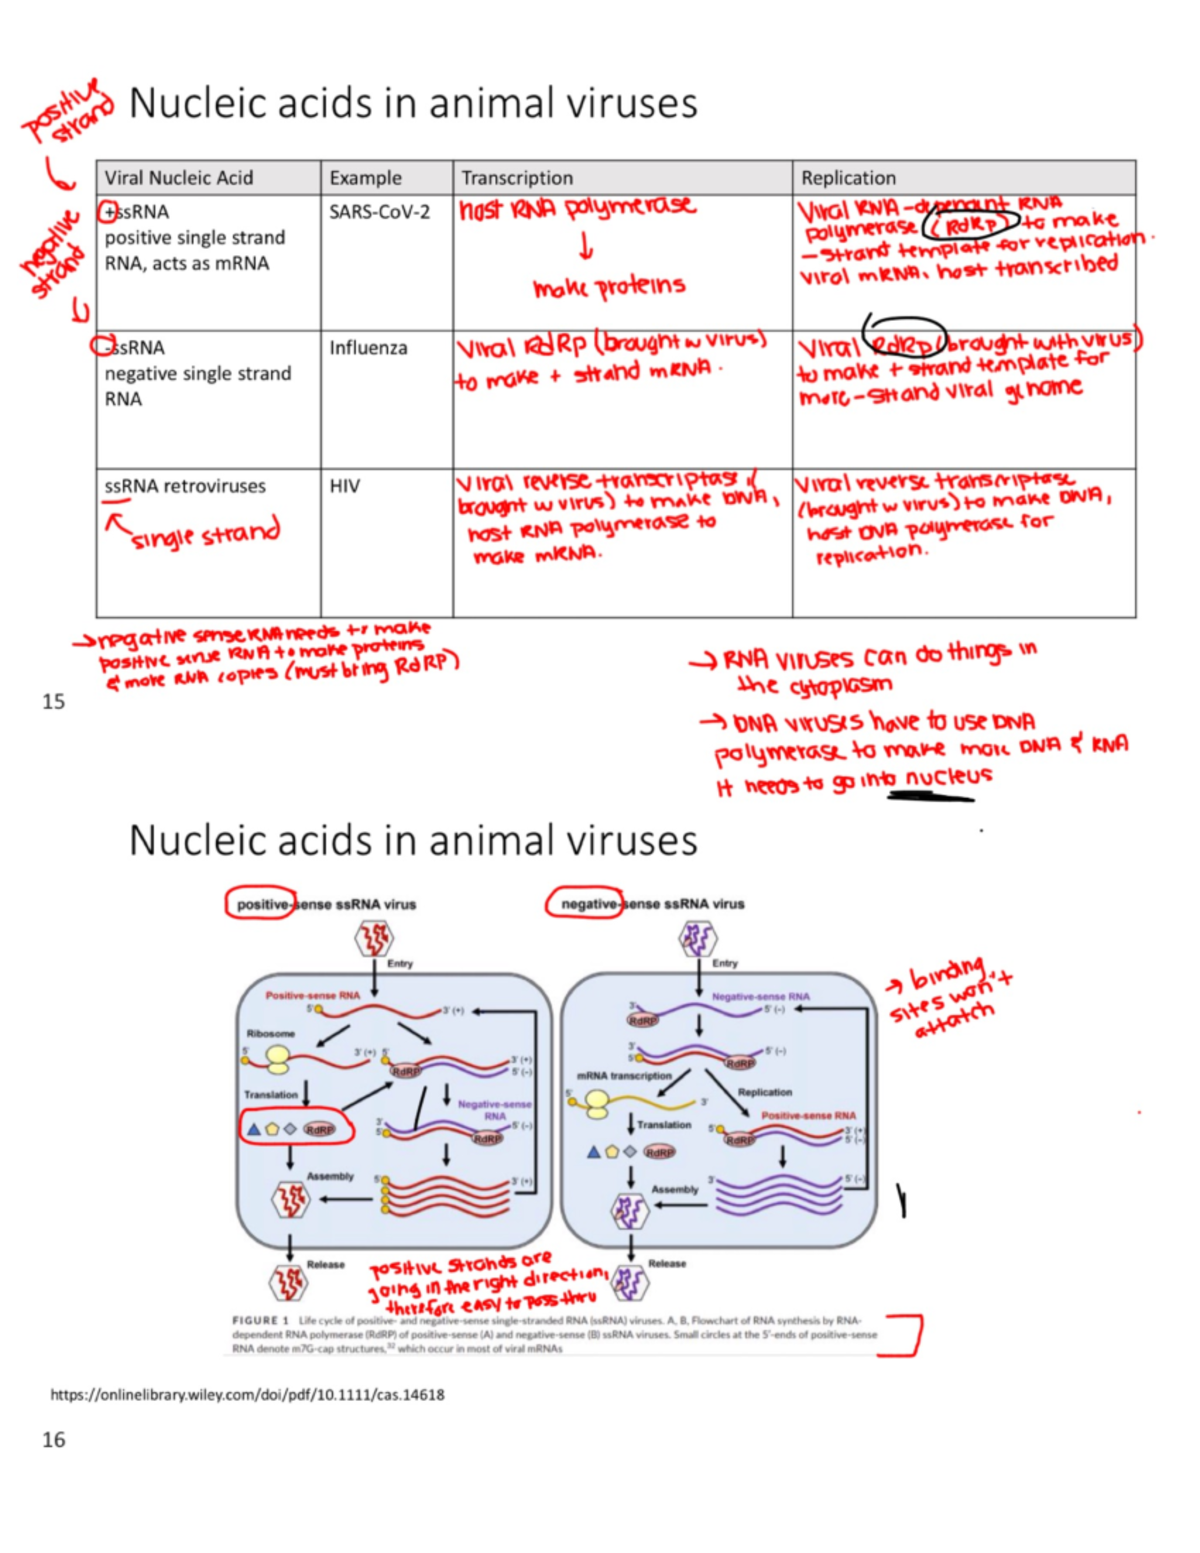 positive
strand
Nucleic acids in animal viruses
negative
strand
Viral Nucleic Acid
Example
Transcription
Replication
+ssRNA
positive single strand
RNA, acts as mRNA
SARS-CoV-2
host RNA polymerase
make proteins
Viral RNA-dependant RNA
polymerase (RdRp) to make
- strand template for replication.
viral mRNA, host transcribed
-ssRNA
negative single strand
RNA
Influenza
Viral RdRp (brought w virus)
to make + strand mRNA.
Viral RdRp (brought with virus)
to make + strand template for
more - strand viral genome
ssRNA retroviruses
single strand
HIV
Viral reverse transcriptase (
brought w virus) to make DNA,
host RNA polymerase to
make mRNA.
Viral reverse transcriptase
(brought w virus) to make DNA,
host DNA polymerase for
replication.
→ negative sense RNA needs to make
positive sense RNA to make proteins
& more RNA copies (must bring RdRP)
→ RNA viruses can do things in
the cytoplasm
→ DNA viruses have to use DNA
polymerase to make more DNA & RNA
it needs to go into nucleus
15
Nucleic acids in animal viruses
positive-sense ssRNA virus
Entry
Positive-sense RNA
5'
3' (+)
Ribosome
5'
3' (+)
5'
RdRP
3' (+)
5' (-)
Translation
Negative-sense
RNA
RdRP
3'
5'
RdRP
5' (-)
Assembly
5'
3' (+)
Release
negative-sense ssRNA virus
Entry
Negative-sense RNA
3'
RdRP
5' (-)
3'
5'
RdRP
5' (-)
mRNA transcription
5'
3'
Replication
Translation
Positive-sense RNA
5'
RdRP
3' (+)
5' (-)
RdRP
Assembly
3'
5' (-)
Release
→ binding
sites won't
attatch
positive strands are
going in the right direction,
therefore easy to pass thru
FIGURE 1 Life cycle of positive- and negative-sense single-stranded RNA (ssRNA) viruses. A, B, Flowchart of RNA synthesis by RNA-
dependent RNA polymerase (RdRP) of positive-sense (A) and negative-sense (B) ssRNA viruses. Small circles at the 5'-ends of positive-sense
RNA denote m7G-cap structures,32 which occur in most of viral mRNAs
https://onlinelibrary.wiley.com/doi/pdf/10.1111/cas.14618
16